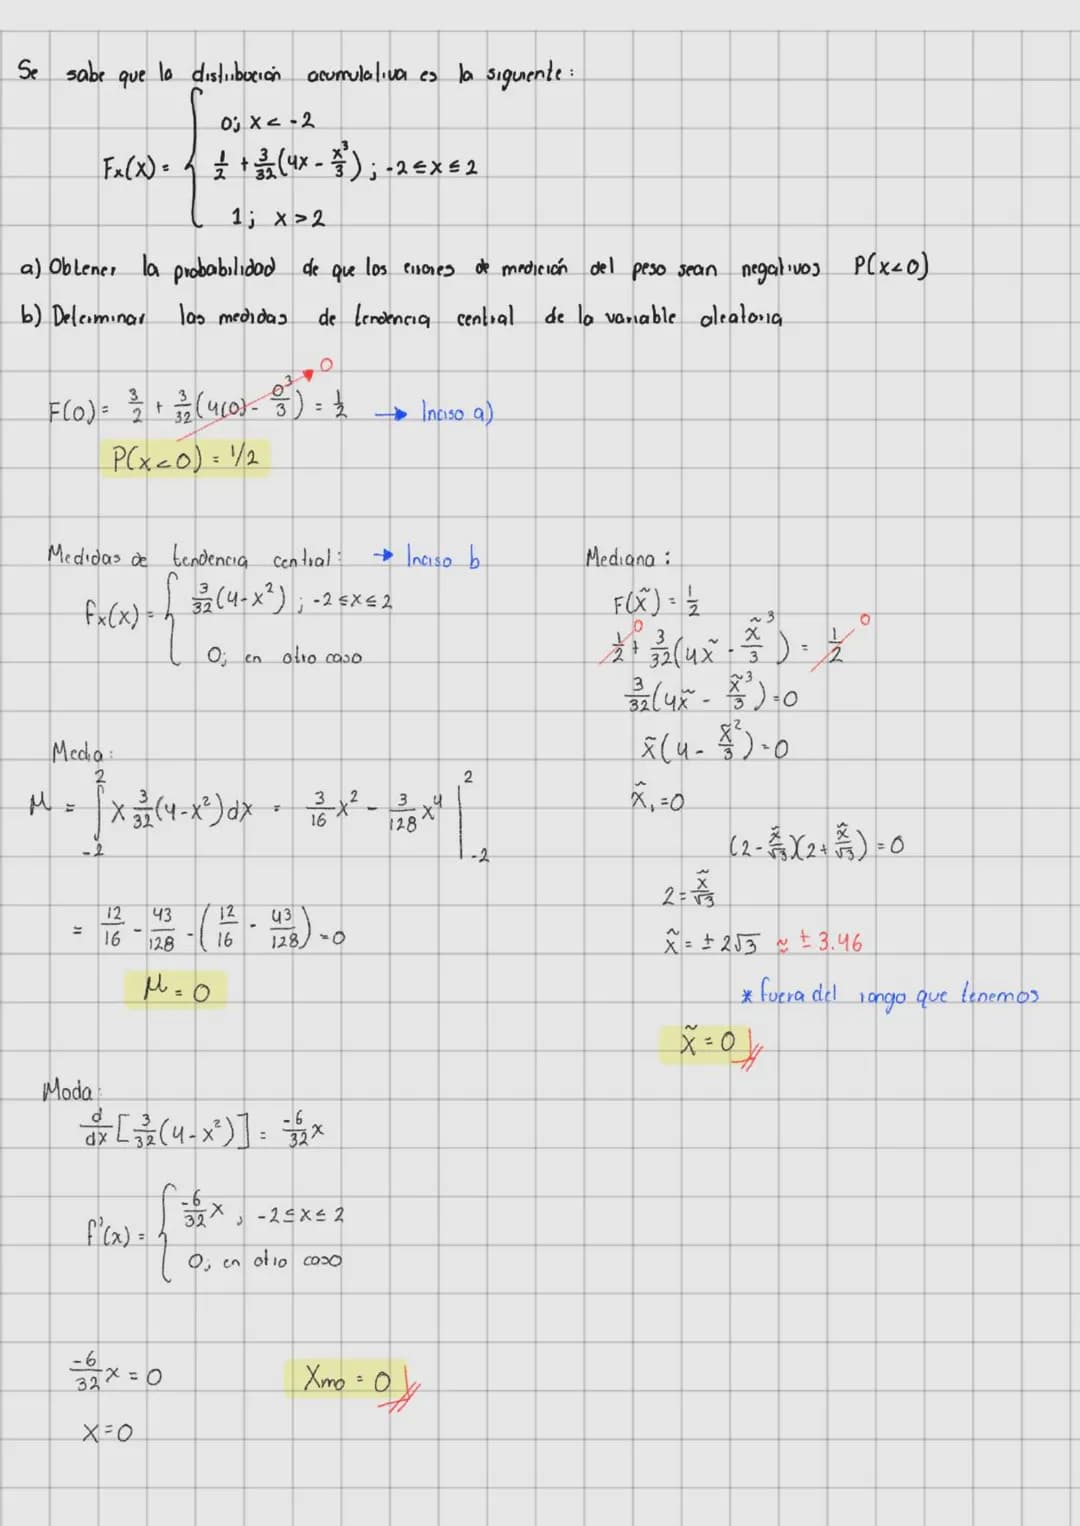 Se sabe que la distribución acumulativa es la siguiente:
0; x < -2
Fx(x) = { 1/2 + 3/32(4x - x³/3); -2 ≤ x ≤ 2
1; x > 2
a) Obtener la probabilidad de que los errores de medición del peso sean negativos P(x<0)
b) Determinar las medidas de tendencia central de la variable aleatoria
0
F(0) = 3/2 + 3/32(4(0) - 0³/3) = 1/2 → Inciso a)
P(x<0) = 1/2
Medidas de tendencia central: → Inciso b
fx(x) = { 3/32(4-x²); -2≤x≤2
0; en otro caso
Media:
M = ∫₋₂² x 3/32(4-x²)dx = 3/16 x² - 3/128 x⁴ |₋₂²
= 12/16 - 43/128 - (12/16 - 43/128) = 0
M = 0
Moda:
d/dx [3/32(4-x²)] = -6/32 x
f'(x) = { -6/32 x, -2≤x≤2
0; en otro caso
-6/32 x = 0
x = 0
Xmo = 0
Mediana:
F(x̃) = 1/2
0 0
1/2 + 3/32(4x̃ - x̃³/3) = 1/2
3/32(4x̃ - x̃³/3) = 0
x̃(4 - x̃²/3) = 0
x̃₁ = 0
(2 - x̃/√3)(2 + x̃/√3) = 0
2 = x̃/√3
x̃ = ± 2√3 ≈ ± 3.46
* fuera del rango que tenemos
x̃ = 0